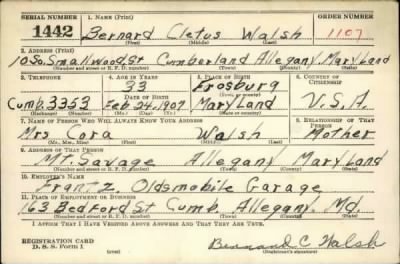 SERIAL NUMBER 1. NAME (Print) ORDER NUMBER
1442 Bernard Cletus Walsh 1107
(First) (Middle) (Last)
2. ADDRESS (Print)
10 So. Smallwood St Cumberland Allegany Maryland
(Number and street or R. F. D. number) (Town) (County) (State)
3. TELEPHONE 4. AGE IN YEARS 5. PLACE OF BIRTH 6. COUNTRY OF CITIZENSHIP
33 Frosburg
Cumb. 3353 DATE OF BIRTH (Town or county) U.S.A.
Feb 24, 1907 Maryland
(Exchange) (Number) (Mo.) (Day) (Yr.) (State or country)
7. NAME OF PERSON WHO WILL ALWAYS KNOW YOUR ADDRESS 8. RELATIONSHIP OF THAT PERSON
Mrs Cora Walsh Mother
(Mr., Mrs., Miss) (First) (Middle) (Last)
9. ADDRESS OF THAT PERSON
Mt. Savage Allegany Maryland
(Number and street or R. F. D. number) (Town) (County) (State)
10. EMPLOYER'S NAME
Frantz Oldsmobile Garage
11. PLACE OF EMPLOYMENT OR BUSINESS
163 Bedford St Cumb. Allegany. Md.
(Number and street or R. F. D. number) (Town) (County) (State)
I AFFIRM THAT I HAVE VERIFIED ABOVE ANSWERS AND THAT THEY ARE TRUE.
REGISTRATION CARD
D. S. S. Form 1 Bernard C Walsh
(Registrant's signature)